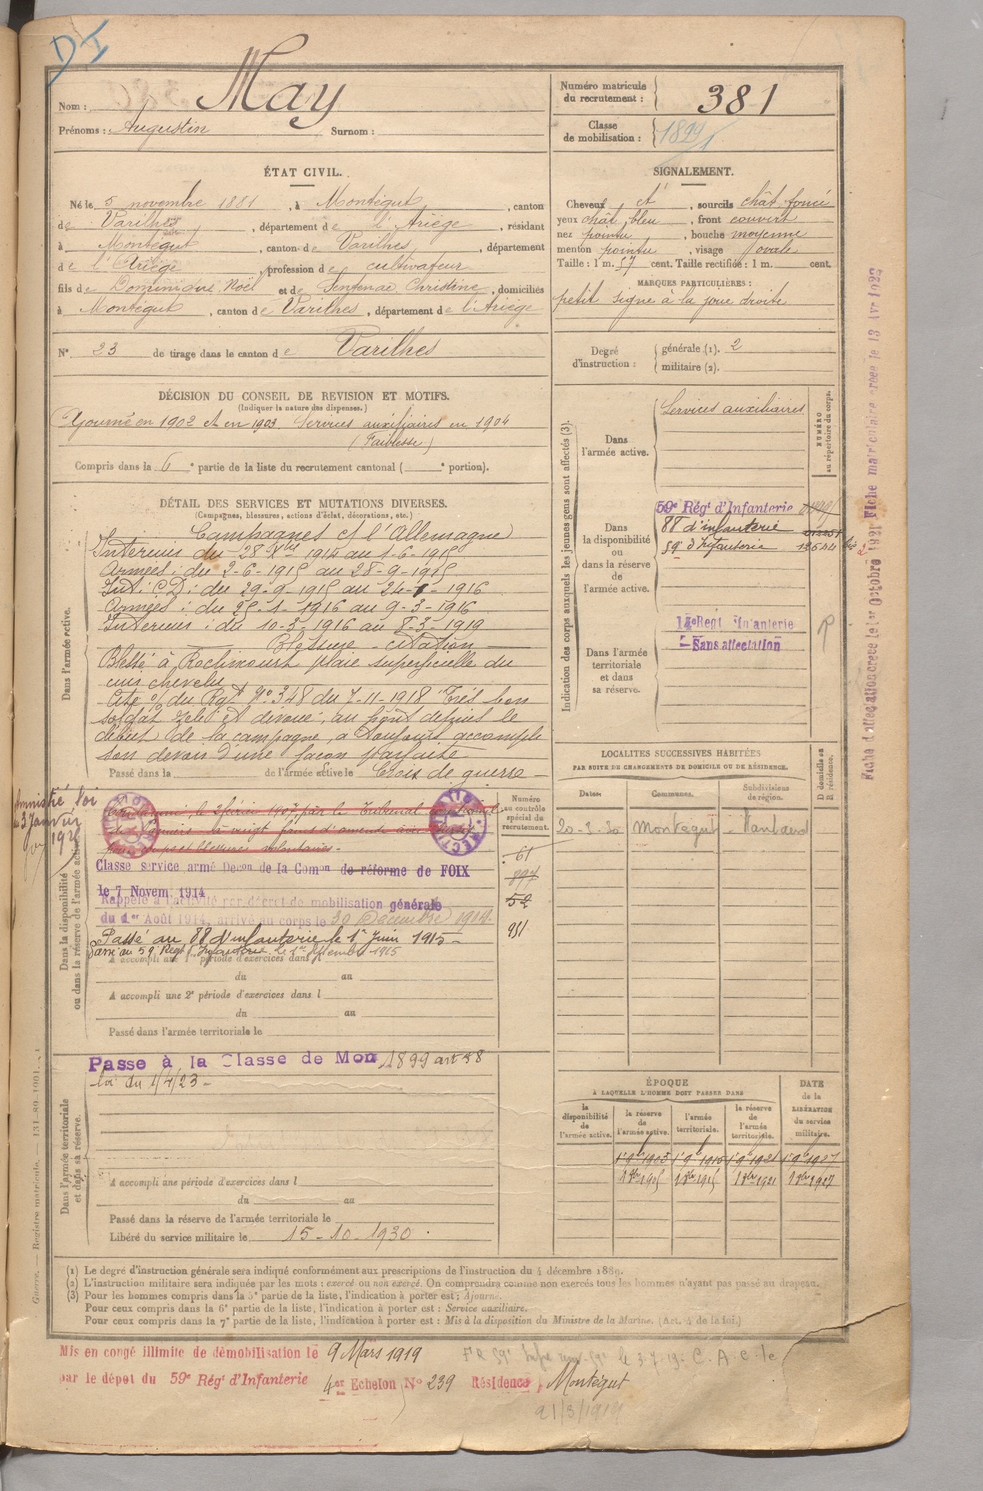 DI
Nom : May
Prénoms : Augustin Surnom :
Numéro matricule du recrutement : 381
Classe de mobilisation : 1899
ÉTAT CIVIL.
Né le 5 novembre 1881, à Montégut, canton
de Varilhes, département de l'Ariège, résidant
à Montégut, canton de Varilhes, département
de l'Ariège, profession de cultivateur
fils de Dominique Noël et de Sentenac Christine, domiciliés
à Montégut, canton de Varilhes, département de l'Ariège
N° 23 de tirage dans le canton de Varilhes
SIGNALEMENT.
Cheveux et, sourcils chât. foncé
yeux chât. bleu, front couvert
nez pointu, bouche moyenne
menton pointu, visage ovale
Taille : 1 m. 57 cent. Taille rectifiée : 1 m. cent.
MARQUES PARTICULIÈRES :
petit signe à la joue droite
Degré d'instruction : générale (1). 2
militaire (2).
DÉCISION DU CONSEIL DE REVISION ET MOTIFS.
(Indiquer la nature des dispenses.)
Ajourné en 1902 et en 1903 Services auxiliaires en 1904
(Faiblesse)
Compris dans la 6e partie de la liste du recrutement cantonal ( e portion).
DÉTAIL DES SERVICES ET MUTATIONS DIVERSES.
(Campagnes, blessures, actions d'éclat, décorations, etc.)
Dans l'armée active.
Campagnes c/ l'Allemagne
Intérieur du 28 Xbre 1914 au 1-6-1915
Armées : du 2-6-1915 au 28-9-1915
Int. C.D : du 29-9-1915 au 24-1-1916
Armées : du 25-1-1916 au 9-3-1916
Intérieur : du 10-3-1916 au 8-3-1919
Blessure - citation
Blessé à Roclincourt plaie superficielle du
cuir chevelu
Cité O. du Rgt n° 348 du 7-11-1918 "Très bon
soldat zélé et dévoué, au front depuis le
début de la campagne, a toujours accompli
son devoir d'une façon parfaite
Passé dans la de l'armée active le Croix de guerre
Indication des corps auxquels les jeunes gens sont affectés (3).
Dans l'armée active.
Services auxiliaires
NUMÉRO au répertoire du corps.
Dans la disponibilité ou dans la réserve de l'armée active.
59e Régt d'Infanterie
88 d'infanterie
59e d'Infanterie 12644 bis
Dans l'armée territoriale et dans sa réserve.
14e Regt Infanterie
Sans affectation
LOCALITÉS SUCCESSIVES HABITÉES
PAR SUITE DE CHANGEMENTS DE DOMICILE OU DE RÉSIDENCE.
Dates. Communes. Subdivisions de région. D domicile ou R résidence.
Montégut
Fiche d'affectation créée le 1er Octobre 1921 Fiche matriculaire créée le 13 Avr 1922
Amnistié loi
du 3 Janvier
1925
Dans la disponibilité ou dans la réserve de l'armée active.
Numéro au contrôle spécial du recrutement.
61
52
981
Classe service armé Décon de la Comon de réforme de FOIX
le 7 Novem 1914
Rappelé à l'activité par décret de mobilisation générale
du 1er Août 1914, arrivé au corps le 30 Décembre 1914.
Passé au 88 d'infanterie le 1er Juin 1915
Passé au 59 Régt d'Infanterie le
A accompli une 1re période d'exercices dans l
du au
A accompli une 2e période d'exercices dans l
du au
Passé dans l'armée territoriale le
Dans l'armée territoriale et dans sa réserve.
Passe à la Classe de Mon 1899 art 58
loi du 1/4/23
A accompli une période d'exercices dans l
du au
Passé dans la réserve de l'armée territoriale le
Libéré du service militaire le 15-10-1930
ÉPOQUE
À LAQUELLE L'HOMME DOIT PASSER DANS
la disponibilité de l'armée active. la réserve de l'armée active. l'armée territoriale. la réserve de l'armée territoriale. DATE de la LIBÉRATION du service militaire.
(1) Le degré d'instruction générale sera indiqué conformément aux prescriptions de l'instruction du 4 décembre 1889.
(2) L'instruction militaire sera indiquée par les mots : exercé ou non exercé. On comprendra comme non exercés tous les hommes n'ayant pas passé au drapeau.
(3) Pour les hommes compris dans la 5e partie de la liste, l'indication à porter est : Ajourné.
Pour ceux compris dans la 6e partie de la liste, l'indication à porter est : Service auxiliaire.
Pour ceux compris dans la 7e partie de la liste, l'indication à porter est : Mis à la disposition du Ministre de la Marine. (Art. 4 de la loi.)
Mis en congé illimité de démobilisation le 9 Mars 1919
par le dépôt du 59e Régt d'Infanterie 4er Echelon N° 239 Résidence, Montégut